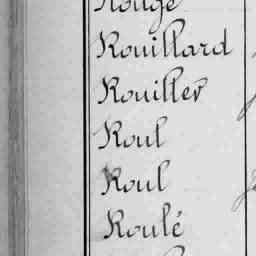 Rouge
Rouillard
Rouiller
Roul
Roul
Roulé